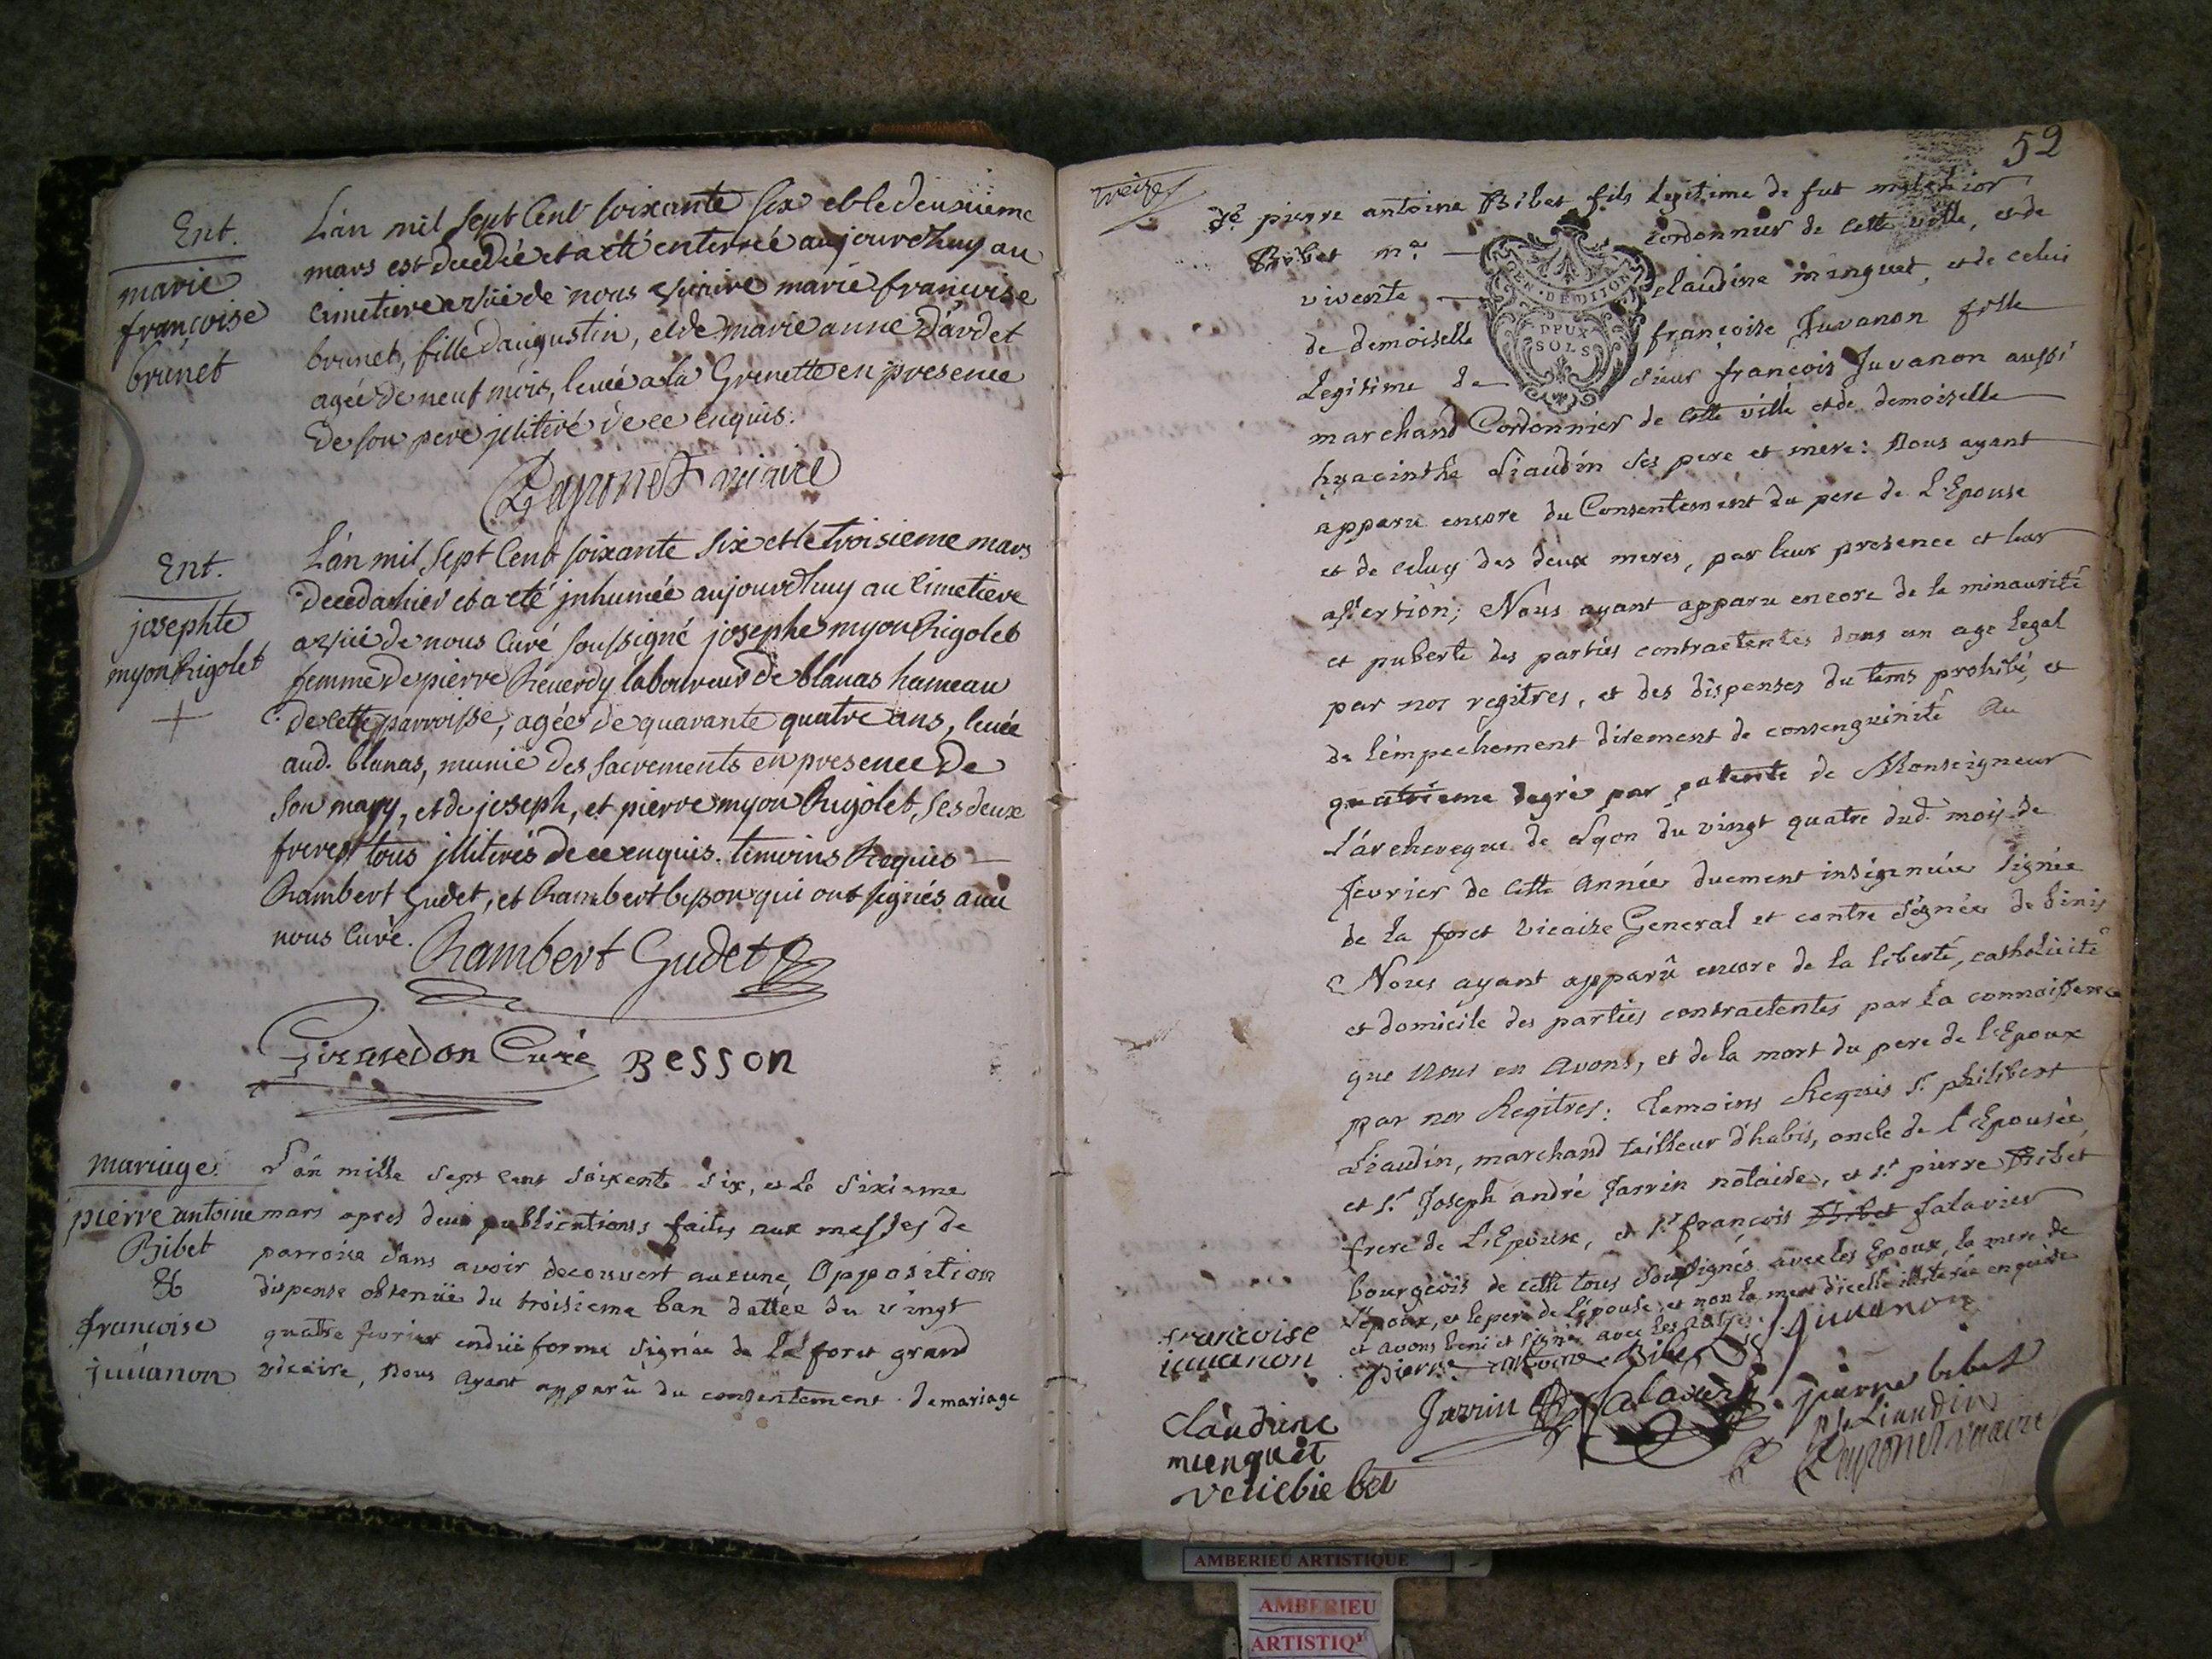 Ent.
marie
françoise
brunet
L'an mil sept cent soixante six et le deuxieme
mars est decedée et a eté enterrée aujourdhuy au
cimetiere de nous vicaire marie françoise
brunet, fille d'augustin, et de marie anne Dardet
agée de neuf mois, levée a la Grenette en presence
de son pere jlliteré de ce enquis.
Peyronet vicaire
Ent.
josephte
myon Rigolet
L'an mil sept cent soixante six et le troisieme mars
deceda hier et a eté jnhumée aujourdhuy au cimetiere
de nous curé soussigné josephe myon Rigolet
femme de pierre Reverdy laboureur de blanas hameau
de cette parroisse, agée de quarante quatre ans, levée
aud. blanas, munie des sacrements en presence de
son mary, et de joseph, et pierre myon Rigolet, ses deux
freres tous jlliterés de ce enquis. temoins Requis
Rambert Gudet, et Rambert besson qui ont signés avec
nous curé. Rambert Gudet
Girardon Curé Besson
mariage.
pierre antoine
Bibet
&
francoise
juuanon
L'an mille sept cent soixente six, et le sixieme
mars apres deux publications faites aux messes de
parroise sans avoir decouvert aucune Opposition
dispense obtenüe du troisieme ban dattée du vingt
quatre fevrier en düe forme signée de la foret grand
vicaire, nous ayant apparû du consentement de mariage
52
treize
de pierre antoine Bibet fils legitime de fut melchior
Bibet md cordonnier de cette ville, et de
vivente claudine minguet, et de celui
de demoiselle françoise Juvanon fille
legitime de sieur françois Juvanon aussi
marchand Cordonnier de cette ville et de demoiselle
hyacinthe Liaudin ses pere et mere: Nous ayant
apparu encore du Consentement du pere de L'Epouse
et de celuy des deux meres, par leur presence et leur
assertion; Nous ayant apparu encore de la minaurité
et puberté des parties contractentes dans un age legal
par nos regitres, et des dispenses du tems prohibé, et
de l'empechement diremant de consenguinité au
quatrieme degré par patente de Monseigneur
L'archeveque de Lyon du vingt quatre dud. mois de
fevrier de cette Année duement insignnüée signée
de la foret Vicaire General et contre signée de
Nous ayant apparû encore de la liberté, catholicité
et domicile des parties contractentes par la connaissance
que nous en Avons, et de la mort du pere de l'Epoux
par nos Regitres: temoins Requis Sr philibert
Liaudin, marchand tailleur d'habis, oncle de l'Epousée,
et Sr Joseph andré Jarrin notaire, et Sr pierre Bibet
frere de L'Epoux, et Sr françois Bibet falavier
bourgeois de cette tous soussignés avec les Epoux, la mere de
L'époux, et le pere de l'épouse, et non la mere d'icelle illiterée enquise
et avons beni et signé avec les
francoise
juuanon
Pierre antoine Bibet
Juuanon
Claudine
menguet
Jarrin falavier
pierre bebet
ph Liaudin
Peyronet vicaire
DEN. DE DIJON
DEUX
SOLS
AMBERIEU ARTISTIQUE
AMBERIEU
ARTISTIQ